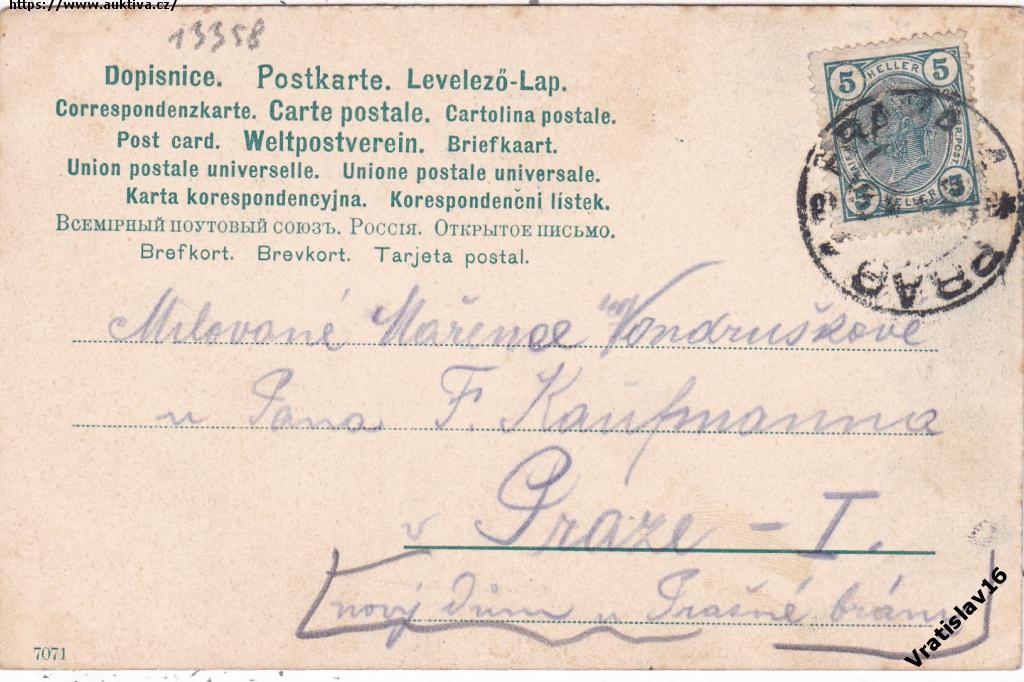 https://www.auktiva.cz/
13358
Dopisnice. Postkarte. Levelező-Lap.
Correspondenzkarte. Carte postale. Cartolina postale.
Post card. Weltpostverein. Briefkaart.
Union postale universelle. Unione postale universale.
Karta korespondencyjna. Korespondenčni lístek.
Всемірный поутовый союзъ. Россія. Открытое письмо.
Brefkort. Brevkort. Tarjeta postal.
5 HELLER 5
5 HELLER 5
PRAG
Milované Mařence Vondruškové
u Pana F. Kaufmanna
v Praze - I.
nový dům u Prašné brány
7071
Vratislav16